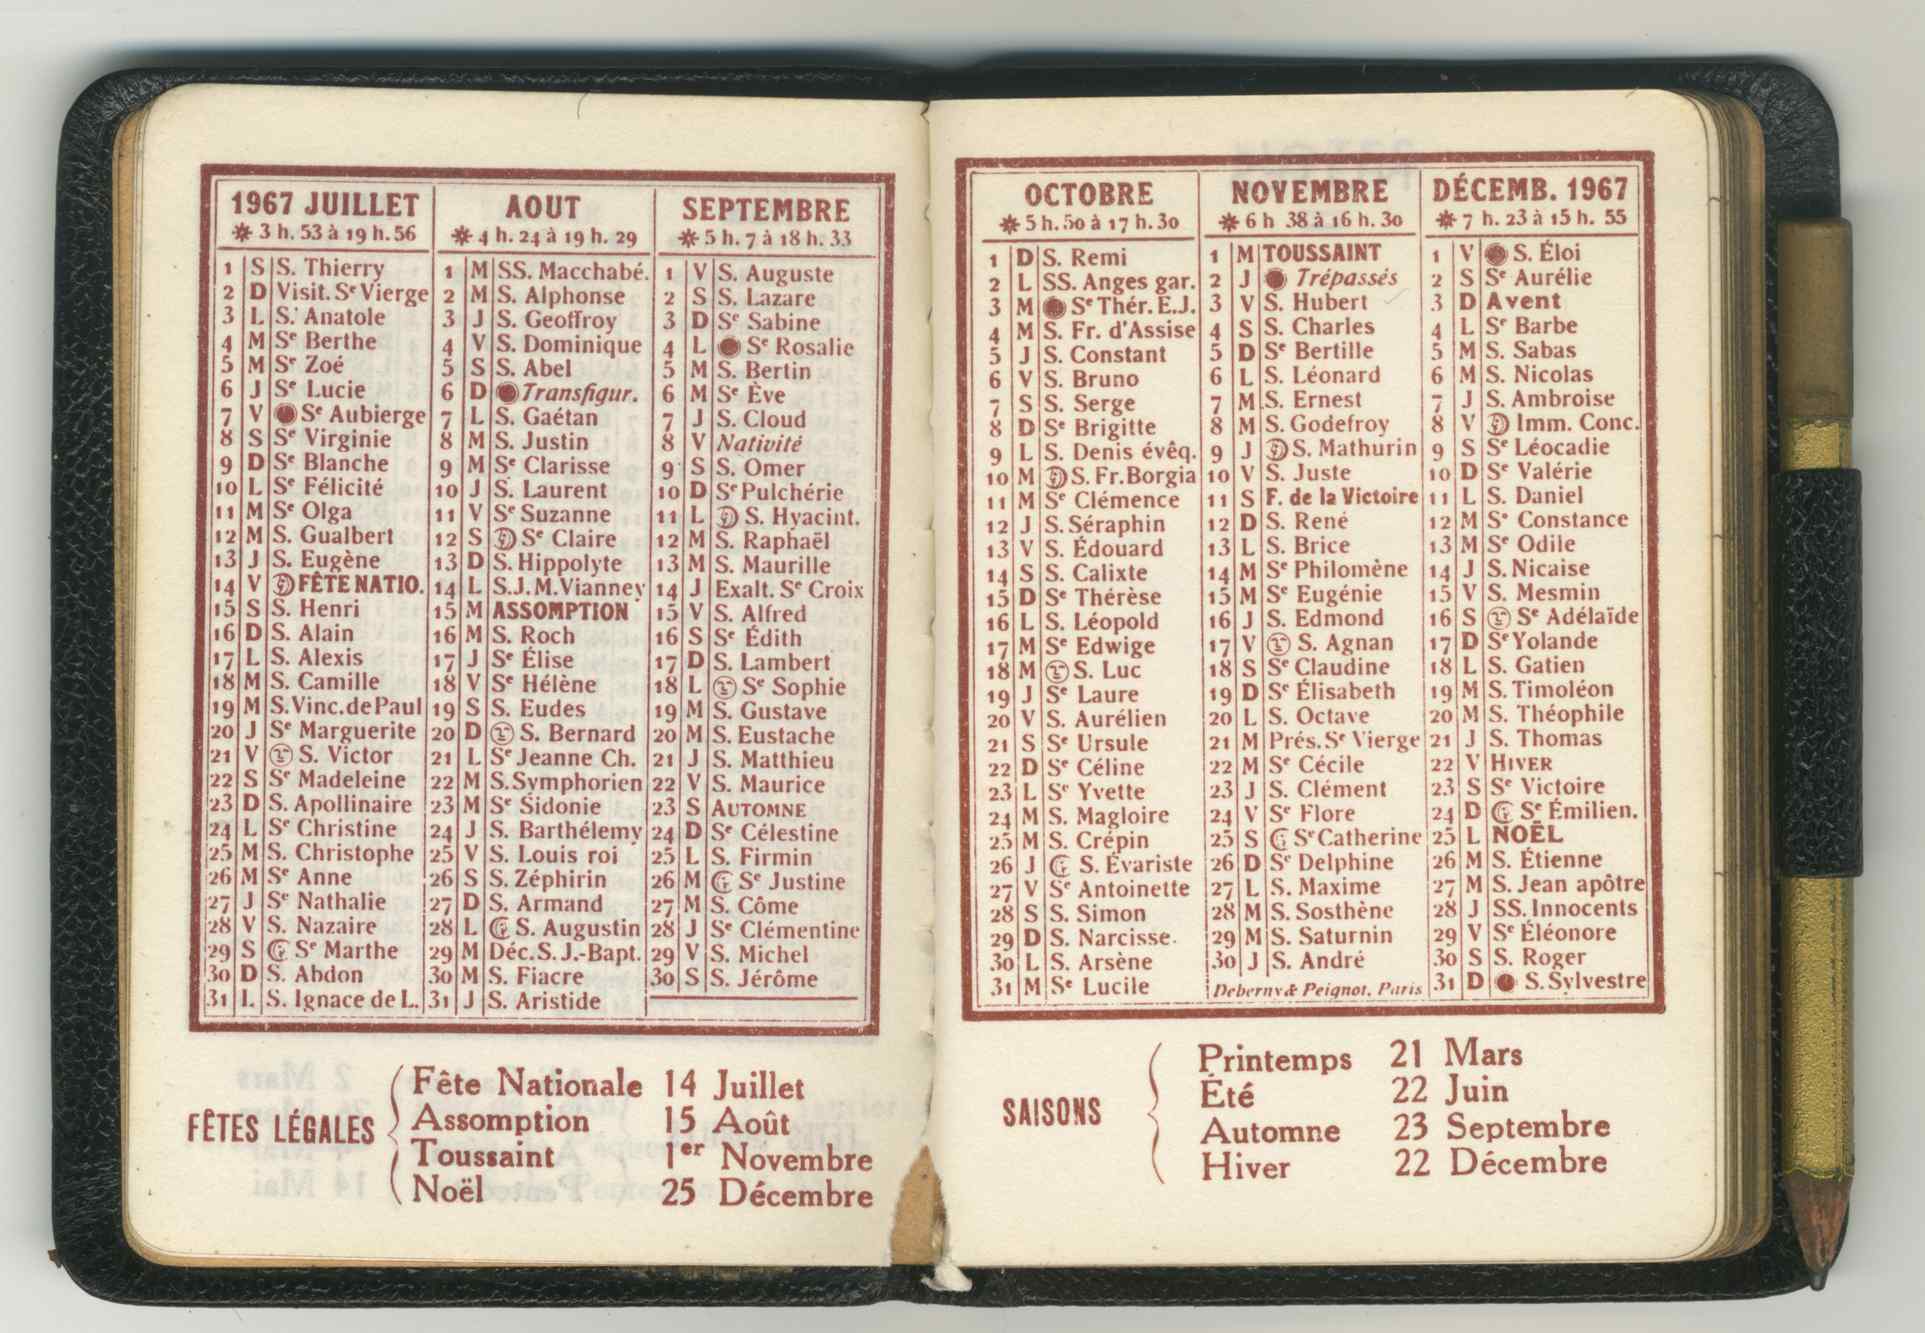 1967 JUILLET
3 h. 53 à 19 h. 56
1 S S. Thierry
2 D Visit. Sᵉ Vierge
3 L S. Anatole
4 M Sᵉ Berthe
5 M Sᵉ Zoé
6 J Sᵉ Lucie
7 V Sᵉ Aubierge
8 S Sᵉ Virginie
9 D Sᵉ Blanche
10 L Sᵉ Félicité
11 M Sᵉ Olga
12 M S. Gualbert
13 J S. Eugène
14 V FÊTE NATIO.
15 S S. Henri
16 D S. Alain
17 L S. Alexis
18 M S. Camille
19 M S. Vinc. de Paul
20 J Sᵉ Marguerite
21 V S. Victor
22 S Sᵉ Madeleine
23 D S. Apollinaire
24 L Sᵉ Christine
25 M S. Christophe
26 M Sᵉ Anne
27 J Sᵉ Nathalie
28 V S. Nazaire
29 S Sᵉ Marthe
30 D S. Abdon
31 L S. Ignace de L.
AOUT
4 h. 24 à 19 h. 29
1 M SS. Macchabé.
2 M S. Alphonse
3 J S. Geoffroy
4 V S. Dominique
5 S S. Abel
6 D Transfigur.
7 L S. Gaétan
8 M S. Justin
9 M Sᵉ Clarisse
10 J S. Laurent
11 V Sᵉ Suzanne
12 S Sᵉ Claire
13 D S. Hippolyte
14 L S.J.M. Vianney
15 M ASSOMPTION
16 M S. Roch
17 J Sᵉ Élise
18 V Sᵉ Hélène
19 S S. Eudes
20 D S. Bernard
21 L Sᵉ Jeanne Ch.
22 M S. Symphorien
23 M Sᵉ Sidonie
24 J S. Barthélemy
25 V S. Louis roi
26 S S. Zéphirin
27 D S. Armand
28 L S. Augustin
29 M Déc. S. J.-Bapt.
30 M S. Fiacre
31 J S. Aristide
SEPTEMBRE
5 h. 7 à 18 h. 33
1 V S. Auguste
2 S S. Lazare
3 D Sᵉ Sabine
4 L Sᵉ Rosalie
5 M S. Bertin
6 M Sᵉ Ève
7 J S. Cloud
8 V Nativité
9 S S. Omer
10 D Sᵉ Pulchérie
11 L S. Hyacint.
12 M S. Raphaël
13 M S. Maurille
14 J Exalt. Sᵉ Croix
15 V S. Alfred
16 S Sᵉ Édith
17 D S. Lambert
18 L Sᵉ Sophie
19 M S. Gustave
20 M S. Eustache
21 J S. Matthieu
22 V S. Maurice
23 S AUTOMNE
24 D Sᵉ Célestine
25 L S. Firmin
26 M Sᵉ Justine
27 M S. Côme
28 J Sᵉ Clémentine
29 V S. Michel
30 S S. Jérôme
FÊTES LÉGALES
Fête Nationale 14 Juillet
Assomption 15 Août
Toussaint 1er Novembre
Noël 25 Décembre
OCTOBRE
5 h. 50 à 17 h. 30
1 D S. Remi
2 L SS. Anges gar.
3 M Sᵉ Thér. E.J.
4 M S. Fr. d'Assise
5 J S. Constant
6 V S. Bruno
7 S S. Serge
8 D Sᵉ Brigitte
9 L S. Denis évêq.
10 M S. Fr. Borgia
11 M Sᵉ Clémence
12 J S. Séraphin
13 V S. Édouard
14 S S. Calixte
15 D Sᵉ Thérèse
16 L S. Léopold
17 M Sᵉ Edwige
18 M S. Luc
19 J Sᵉ Laure
20 V S. Aurélien
21 S Sᵉ Ursule
22 D Sᵉ Céline
23 L Sᵉ Yvette
24 M S. Magloire
25 M S. Crépin
26 J S. Évariste
27 V Sᵉ Antoinette
28 S S. Simon
29 D S. Narcisse
30 L S. Arsène
31 M Sᵉ Lucile
NOVEMBRE
6 h 38 à 16 h. 30
1 M TOUSSAINT
2 J Trépassés
3 V S. Hubert
4 S S. Charles
5 D Sᵉ Bertille
6 L S. Léonard
7 M S. Ernest
8 M S. Godefroy
9 J S. Mathurin
10 V S. Juste
11 S F. de la Victoire
12 D S. René
13 L S. Brice
14 M Sᵉ Philomène
15 M Sᵉ Eugénie
16 J S. Edmond
17 V S. Agnan
18 S Sᵉ Claudine
19 D Sᵉ Élisabeth
20 L S. Octave
21 M Prés. Sᵉ Vierge
22 M Sᵉ Cécile
23 J S. Clément
24 V Sᵉ Flore
25 S Sᵉ Catherine
26 D Sᵉ Delphine
27 L S. Maxime
28 M S. Sosthène
29 M S. Saturnin
30 J S. André
Deberny & Peignot, Paris
DÉCEMB. 1967
7 h. 23 à 15 h. 55
1 V S. Éloi
2 S Sᵉ Aurélie
3 D Avent
4 L Sᵉ Barbe
5 M S. Sabas
6 M S. Nicolas
7 J S. Ambroise
8 V Imm. Conc.
9 S Sᵉ Léocadie
10 D Sᵉ Valérie
11 L S. Daniel
12 M Sᵉ Constance
13 M Sᵉ Odile
14 J S. Nicaise
15 V S. Mesmin
16 S Sᵉ Adélaïde
17 D Sᵉ Yolande
18 L S. Gatien
19 M S. Timoléon
20 M S. Théophile
21 J S. Thomas
22 V HIVER
23 S Sᵉ Victoire
24 D Sᵉ Émilien.
25 L NOËL
26 M S. Étienne
27 M S. Jean apôtre
28 J SS. Innocents
29 V Sᵉ Éléonore
30 S S. Roger
31 D S. Sylvestre
SAISONS
Printemps 21 Mars
Été 22 Juin
Automne 23 Septembre
Hiver 22 Décembre